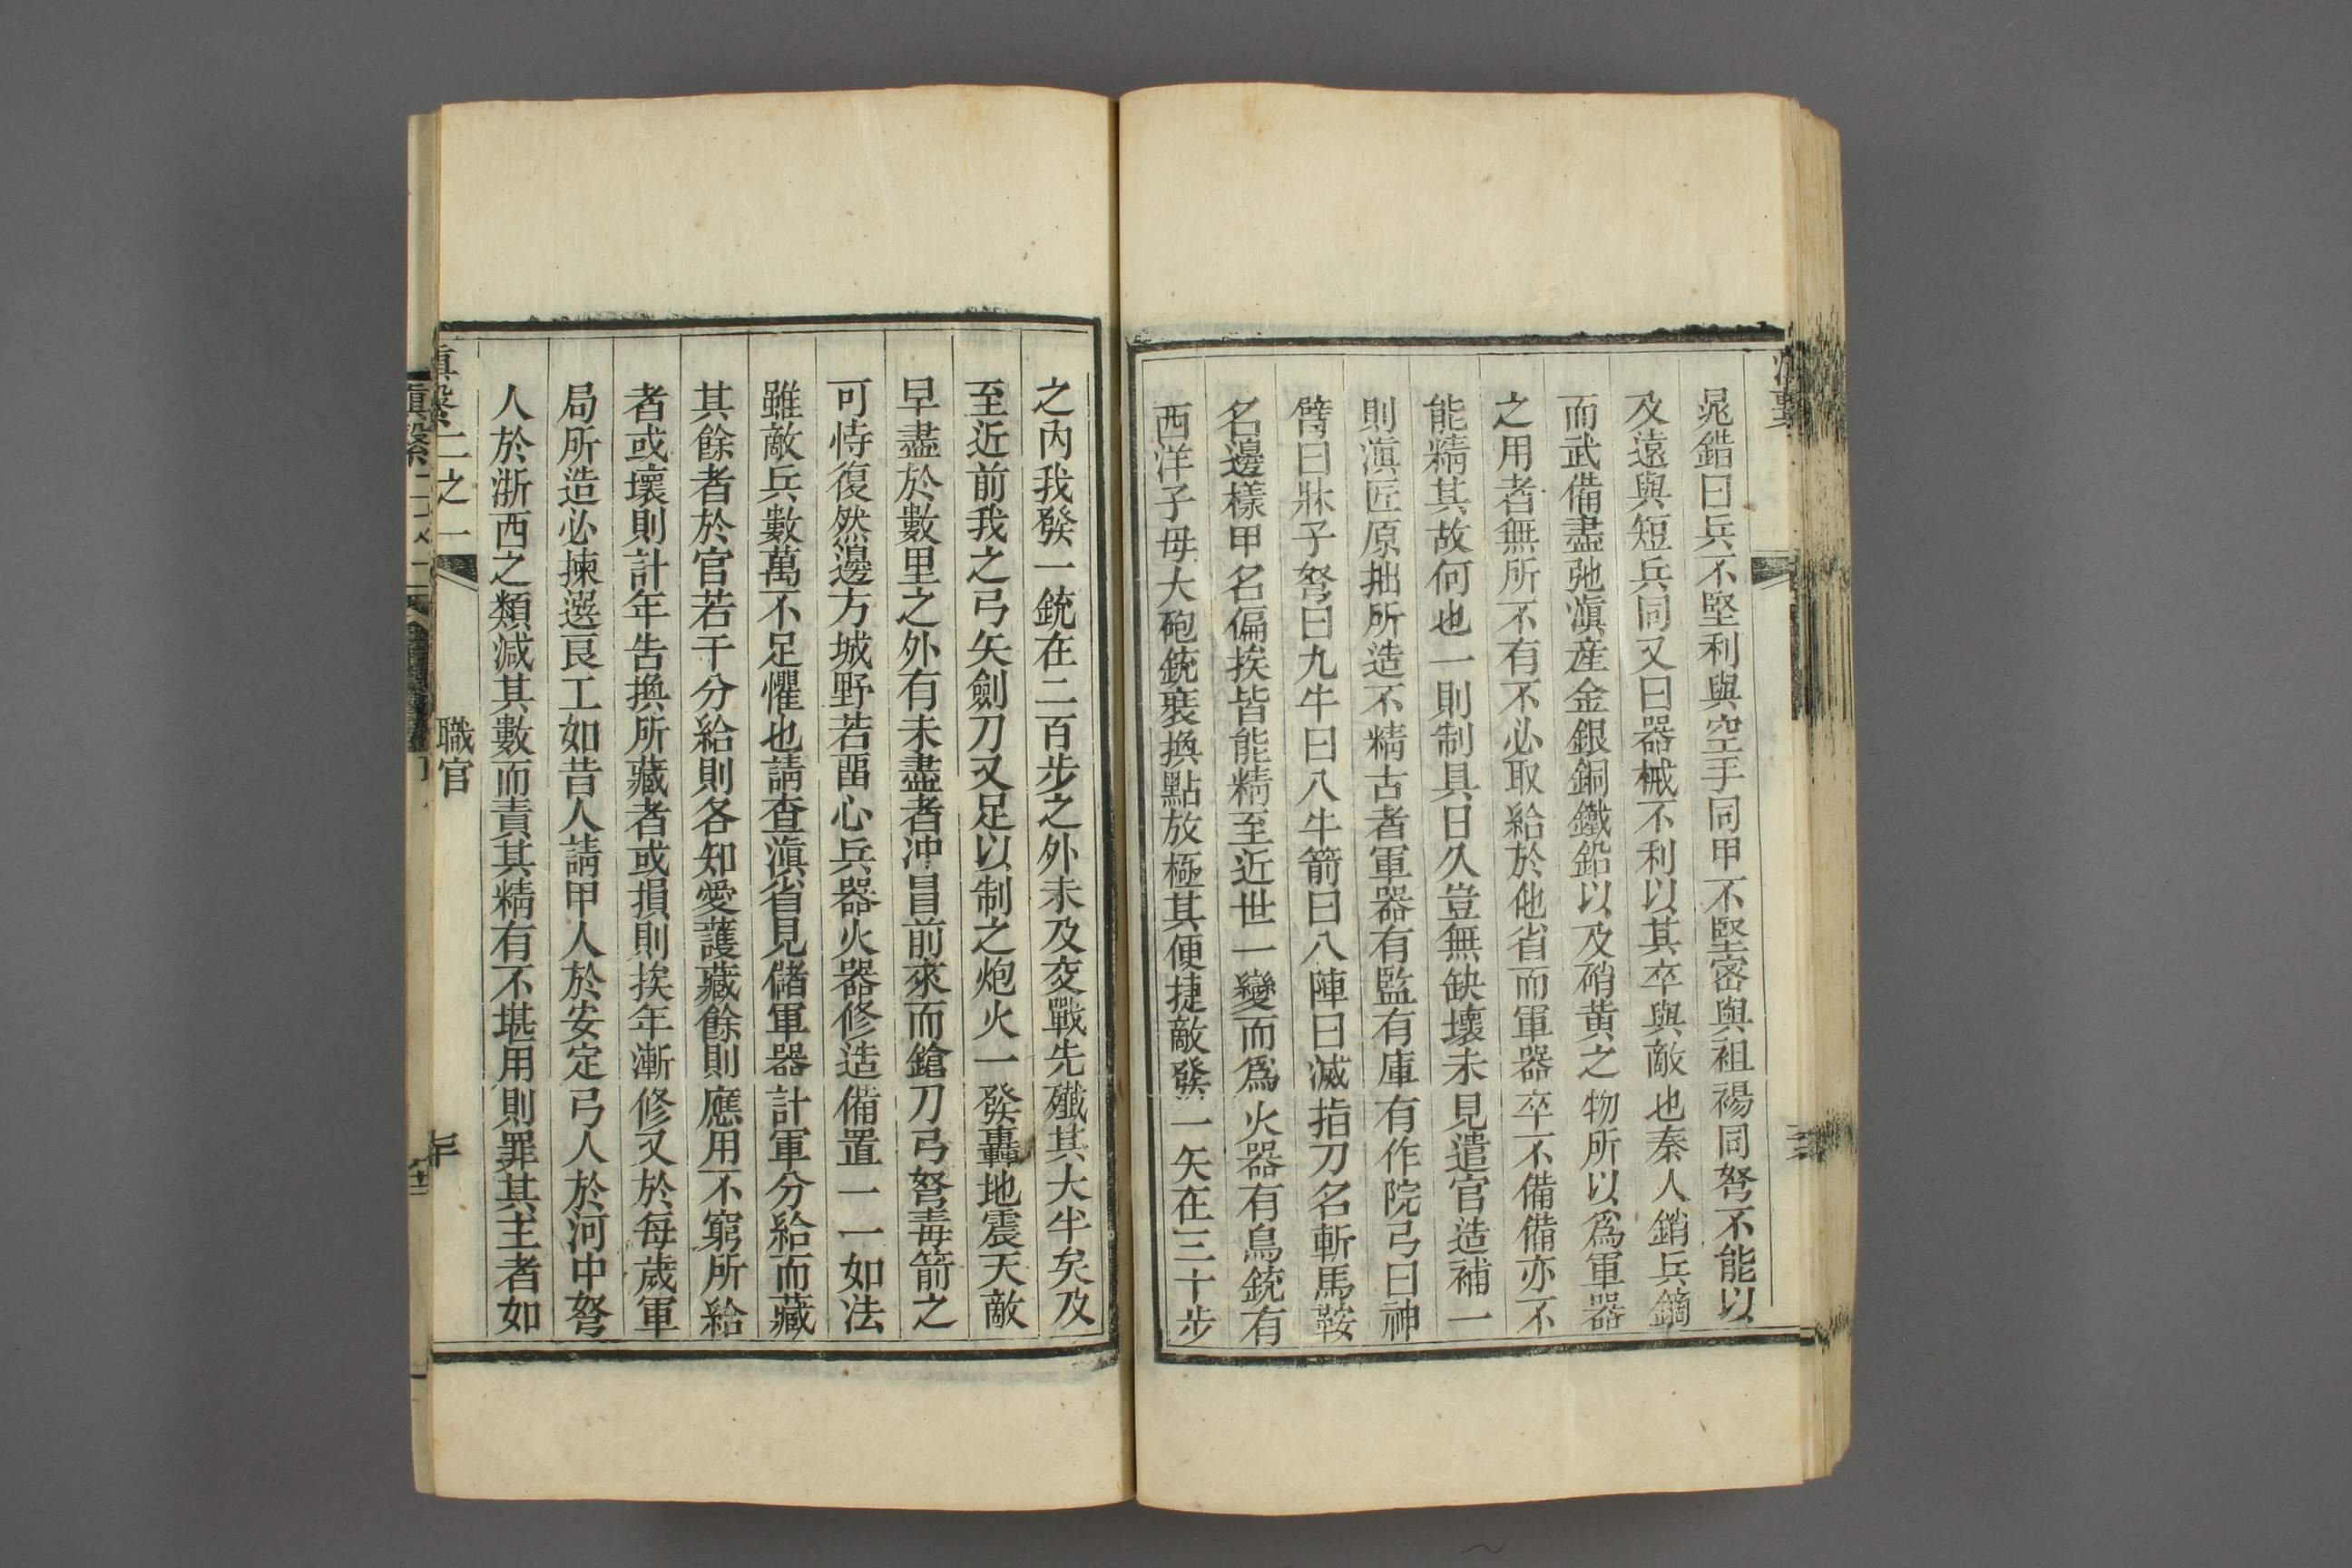 晁錯曰兵不堅利與空手同甲不堅密與袒裼同弩不能以
及遠與短兵同又曰器械不利以其卒與敵也秦人銷兵鏑
而武備盡弛滇産金銀銅鐵鉛以及硝黄之物所以爲軍器
之用者無所不有不必取給於他省而軍器卒不備備亦不
能精其故何也一則制具日久豈無缺壞未見遣官造補一
則滇匠原拙所造不精古者軍器有監有庫有作院弓曰神
臂曰牀子弩曰九牛曰八牛箭曰八陣曰滅指刀名斬馬鞍
名邊樣甲名偏挨皆能精至近世一變而爲火器有鳥銃有
西洋子母大砲銃裝換點放極其便捷敵發一矢在三十步
之内我發一銃在二百步之外未及交戰先殲其大半矣及
至近前我之弓矢劍刀又足以制之炮火一發轟地震天敵
早盡於數里之外有未盡者冲冒前來而鎗刀弓弩毒箭之
可恃復然邊方城野若畱心兵器火器修造備置一一如法
雖敵兵數萬不足懼也請查滇省見儲軍器計軍分給而藏
其餘者於官若干分給則各知愛護藏餘則應用不窮所給
者或壞則計年告換所藏者或損則挨年漸修又於每歲軍
局所造必揀選良工如昔人請甲人於安定弓人於河中弩
人於浙西之類減其數而責其精有不堪用則罪其主者如
滇繫二之一
職官